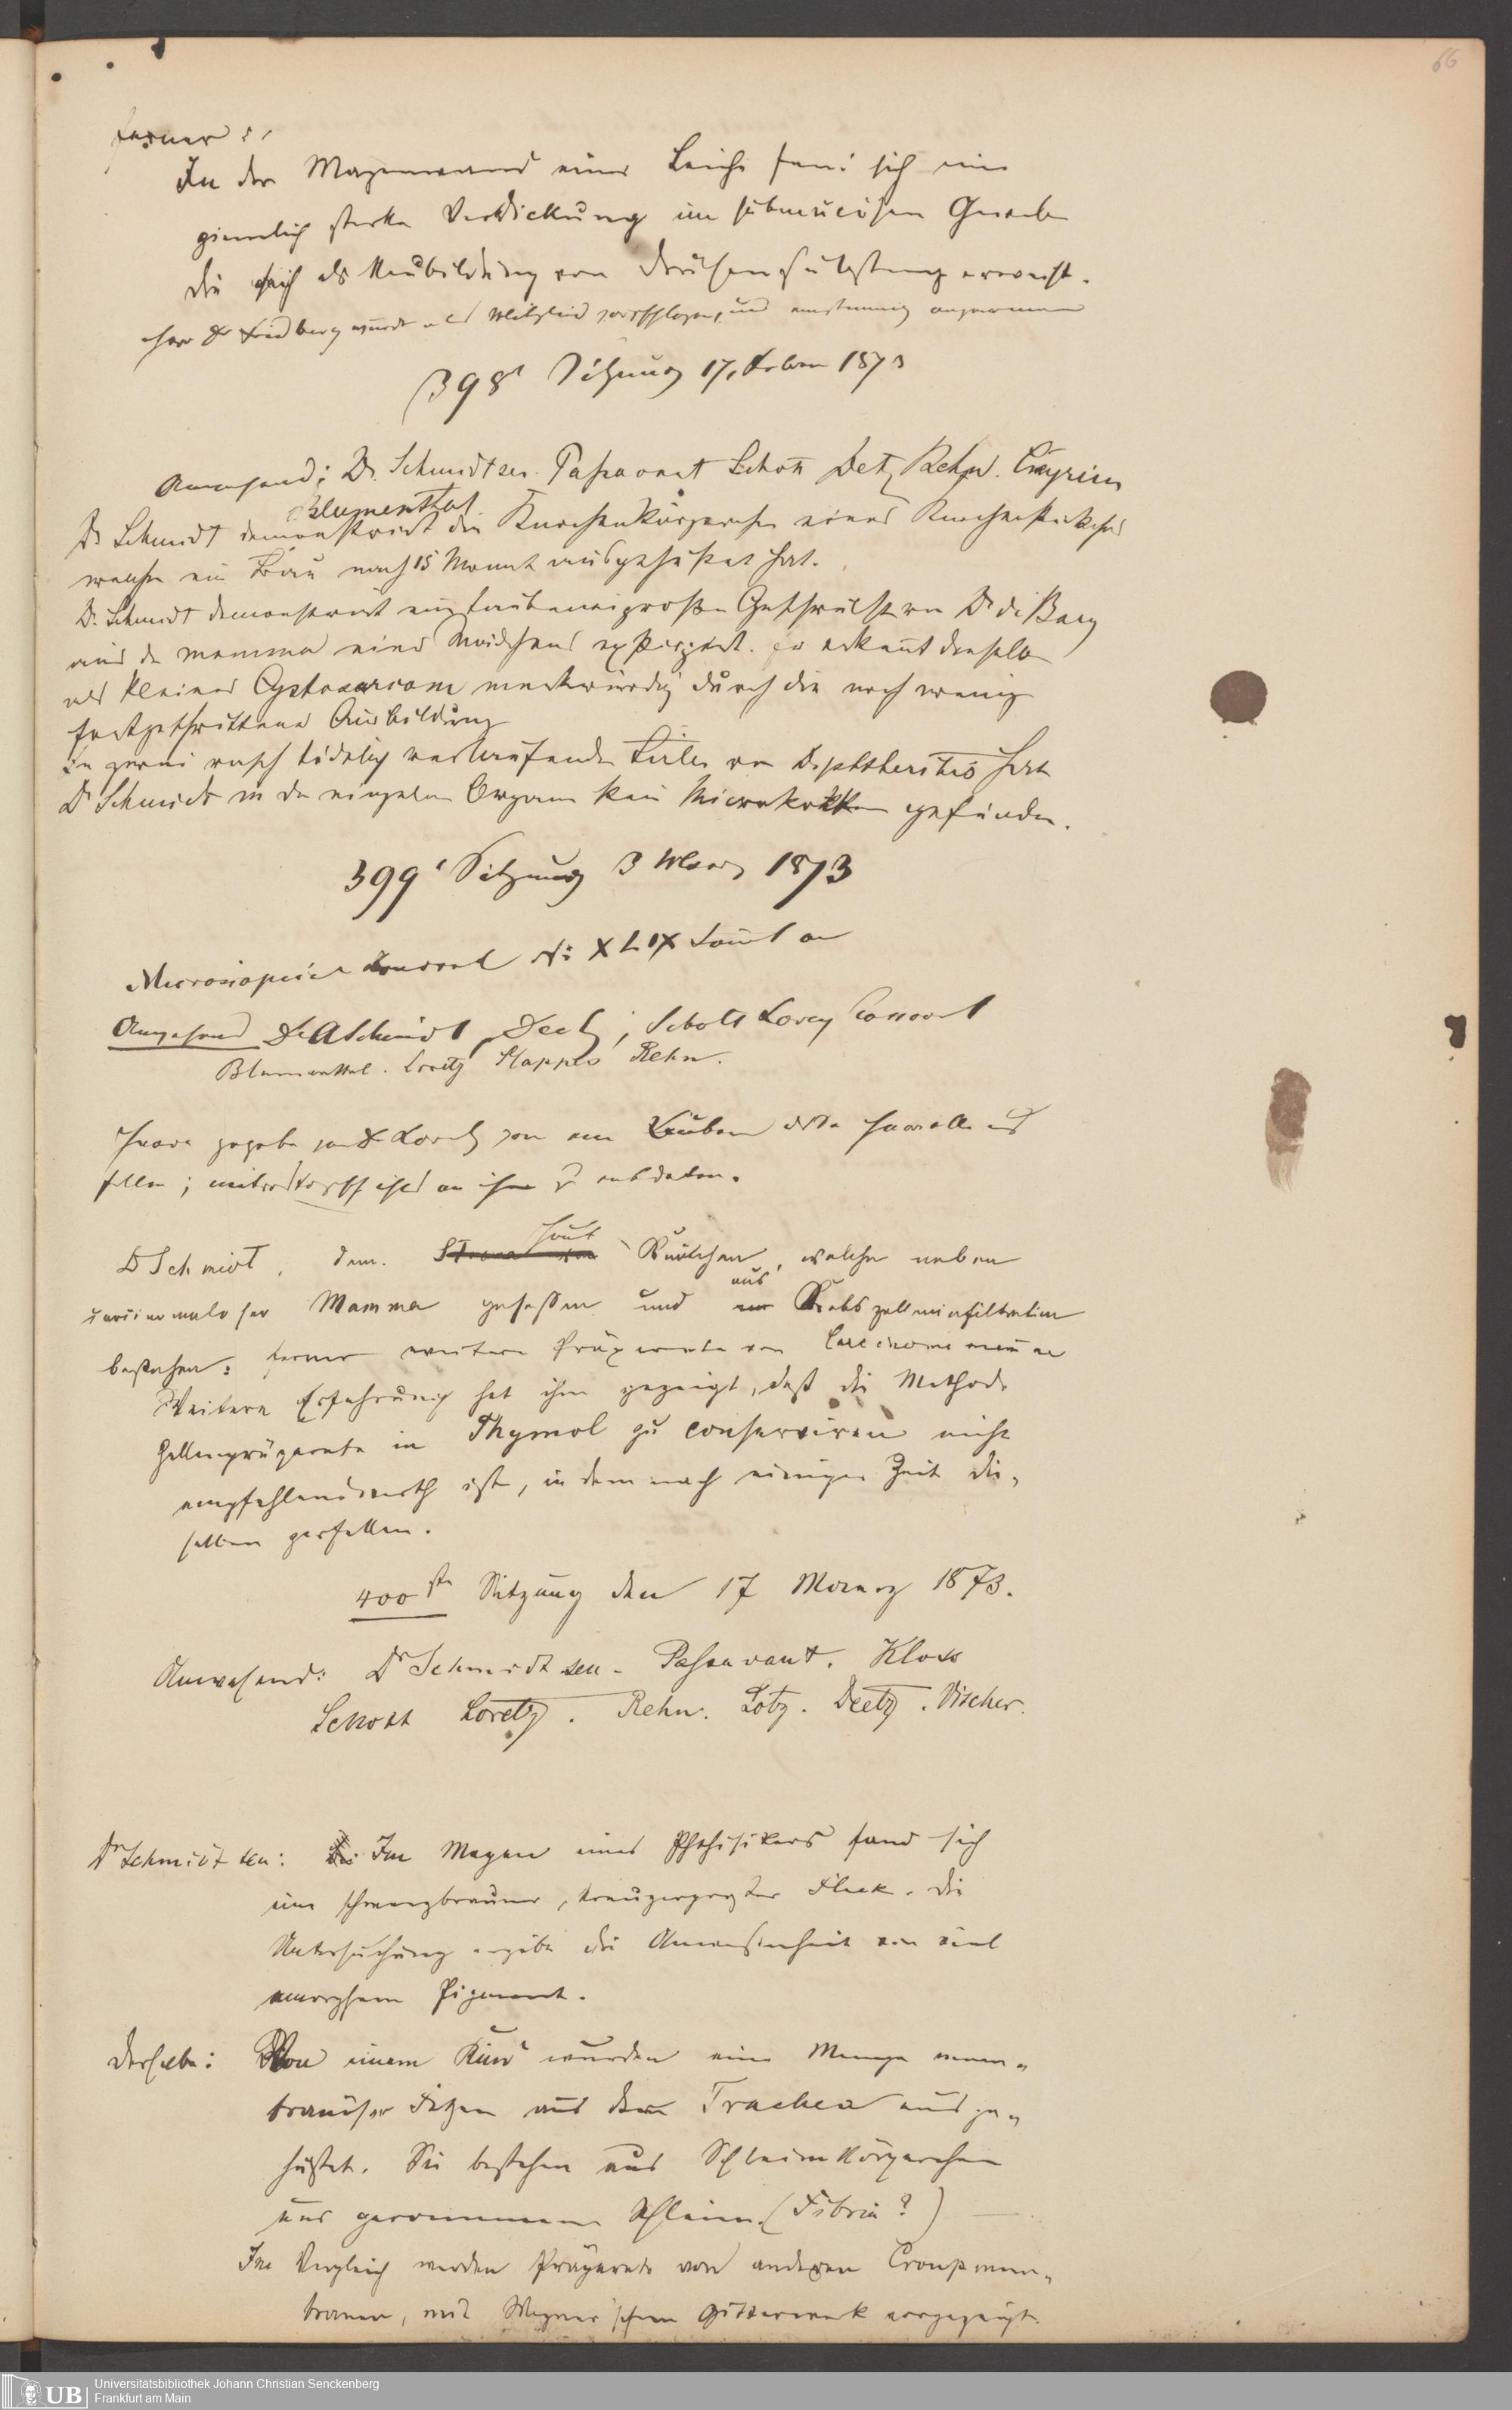 66
ferner:
In der Magenwand einer Leiche fand sich eine
ziemlich starke Verdickung im submucösen Gewebe
die sich als Neubildung von Drüsensubstanz erweist.
Herr Dr Friedberg wurde als Mitglied vorgeschlagen, und einstimmig angenommen
398t Sitzung 17. Febr 1873
Anwesend: Dr. Schmidt sen. Passavant Schott Deetz Rehn. Cnyrim
Blumenthal.
Dr Schmidt demonstrirt die Knochenkörperchen eines Knochenstückchens
welches ein nach 15 Monat ausgehustet hat.
Dr. Schmidt demonstrirt eine taubeneigrosse Geschwulst von Dr de Bary
aus der mamma eines Mädchens exstirpirt. er erkennt dieselbe
als kleines Cystosarcom merkwürdig durch die noch wenig
fortgeschrittene Ausbildung
In zwei rasch tödtlich verlaufenden Fällen von Diphtheritis hat
Dr Schmidt in den einzelnen Organen keine Microkokken gefunden.
399t Sitzung 3 Maerz 1873
Microscopical Journal No XLIX
Anwesend Dr A Schmidt, Deetz, Schott Lorey
Blumenthal. Loretz Stappes Rehn.
Haare gegeben von Dr Loretz von
fallen;
Dr Schmidt, dem. Haut Knötchen, welche neben
carcinomatöser Mamma gesessen und aus Krebszelleninfiltration
bestehen: ferner weitere Präparate von Carcinoma mammae
Weitere Erfahrung hat ihm gezeigt, daß die Methode
Zellenpräparate in Thymol zu conserviren nicht
empfehlenswerth ist, indem nach einiger Zeit die-
selben zerfallen.
400ste Sitzung den 17 Maerz 1873.
Anwesend: Dr Schmidt sen. Passavant. Kloss
Schott Loretz. Rehn. Lotz. Deetz. Vischer.
Dr Schmidt sen: Im Magen eines Phthisikers fand sich
ein schwarzbrauner, kreuzergroßer Fleck. Die
Untersuchung ergibt die Anwesenheit von viel
amorphem Pigment.
Derselbe: Von einem Kind wurden eine Menge mem-
branöser Fetzen aus der Trachea ausge-
hustet. Sie bestehen aus Schleimkörperchen
und geronnenem Schleim (Fibrin?)
Im Vergleich werden Präparate von anderen Croupmem-
branen, mit Wagner'schem Gitterwerk vorgezeigt.
UB Universitätsbibliothek Johann Christian Senckenberg
Frankfurt am Main